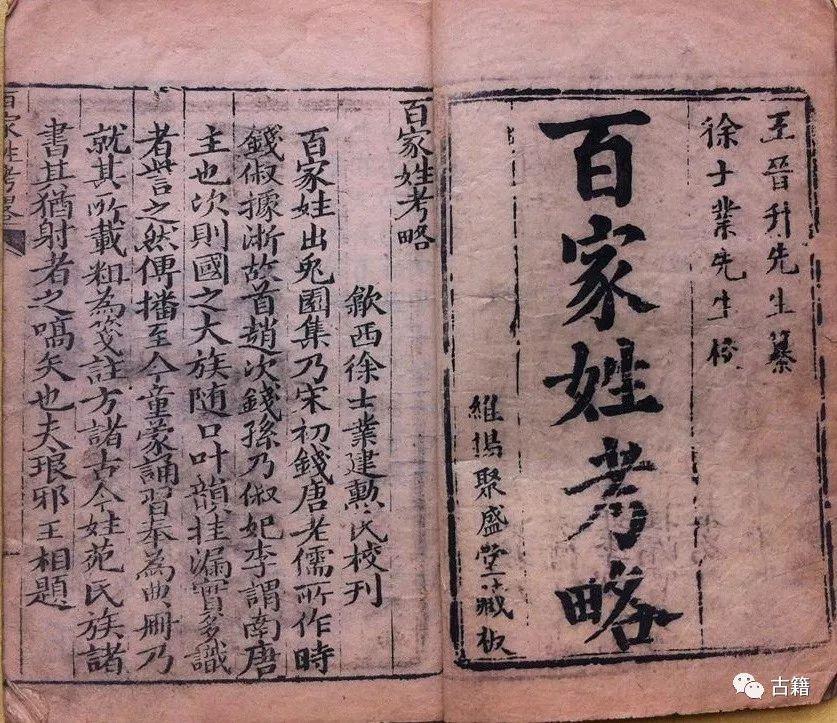 王晉升先生纂
徐士業先生校
百家姓考略
維揚聚盛堂藏板
百家姓考略
歙西徐士業建勲氏校刊
百家姓出兔園集乃宋初錢唐老儒所作時
錢俶據浙故首趙次錢孫乃俶妃李謂南唐
主也次則國之大族随口叶韻挂漏實多識
者訾之然傳播至今童蒙誦習奉為典冊乃
就其所載粗為箋註方諸古今姓苑氏族諸
書其猶射者之嚆矢也夫琅邪王相題
百家姓考畧
古籍